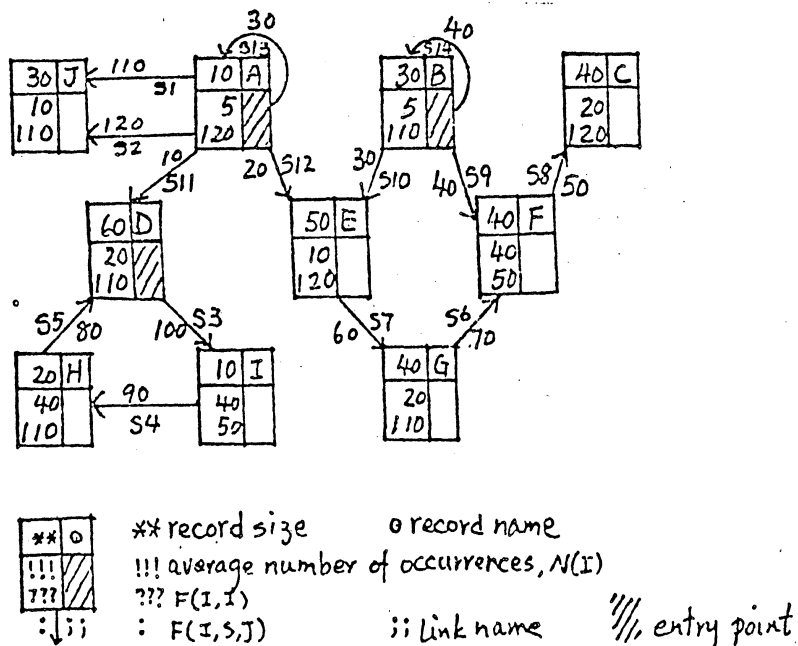 30
40
S13
S14
30 J
110
S1
10 A
30 B
40 C
10
110
120
S2
5
120
5
110
20
120
10
S11
20
S12
30
S10
40
S9
S8
50
60 D
20
110
50 E
10
120
40 F
40
50
S5
80
100
S3
60
S7
S6
70
20 H
40
110
90
S4
10 I
40
50
40 G
20
110
** o
!!!
???
: ;;
** record size
o record name
!!! average number of occurrences, N(I)
??? F(I,I)
: F(I,S,J)
;; Link name
entry point